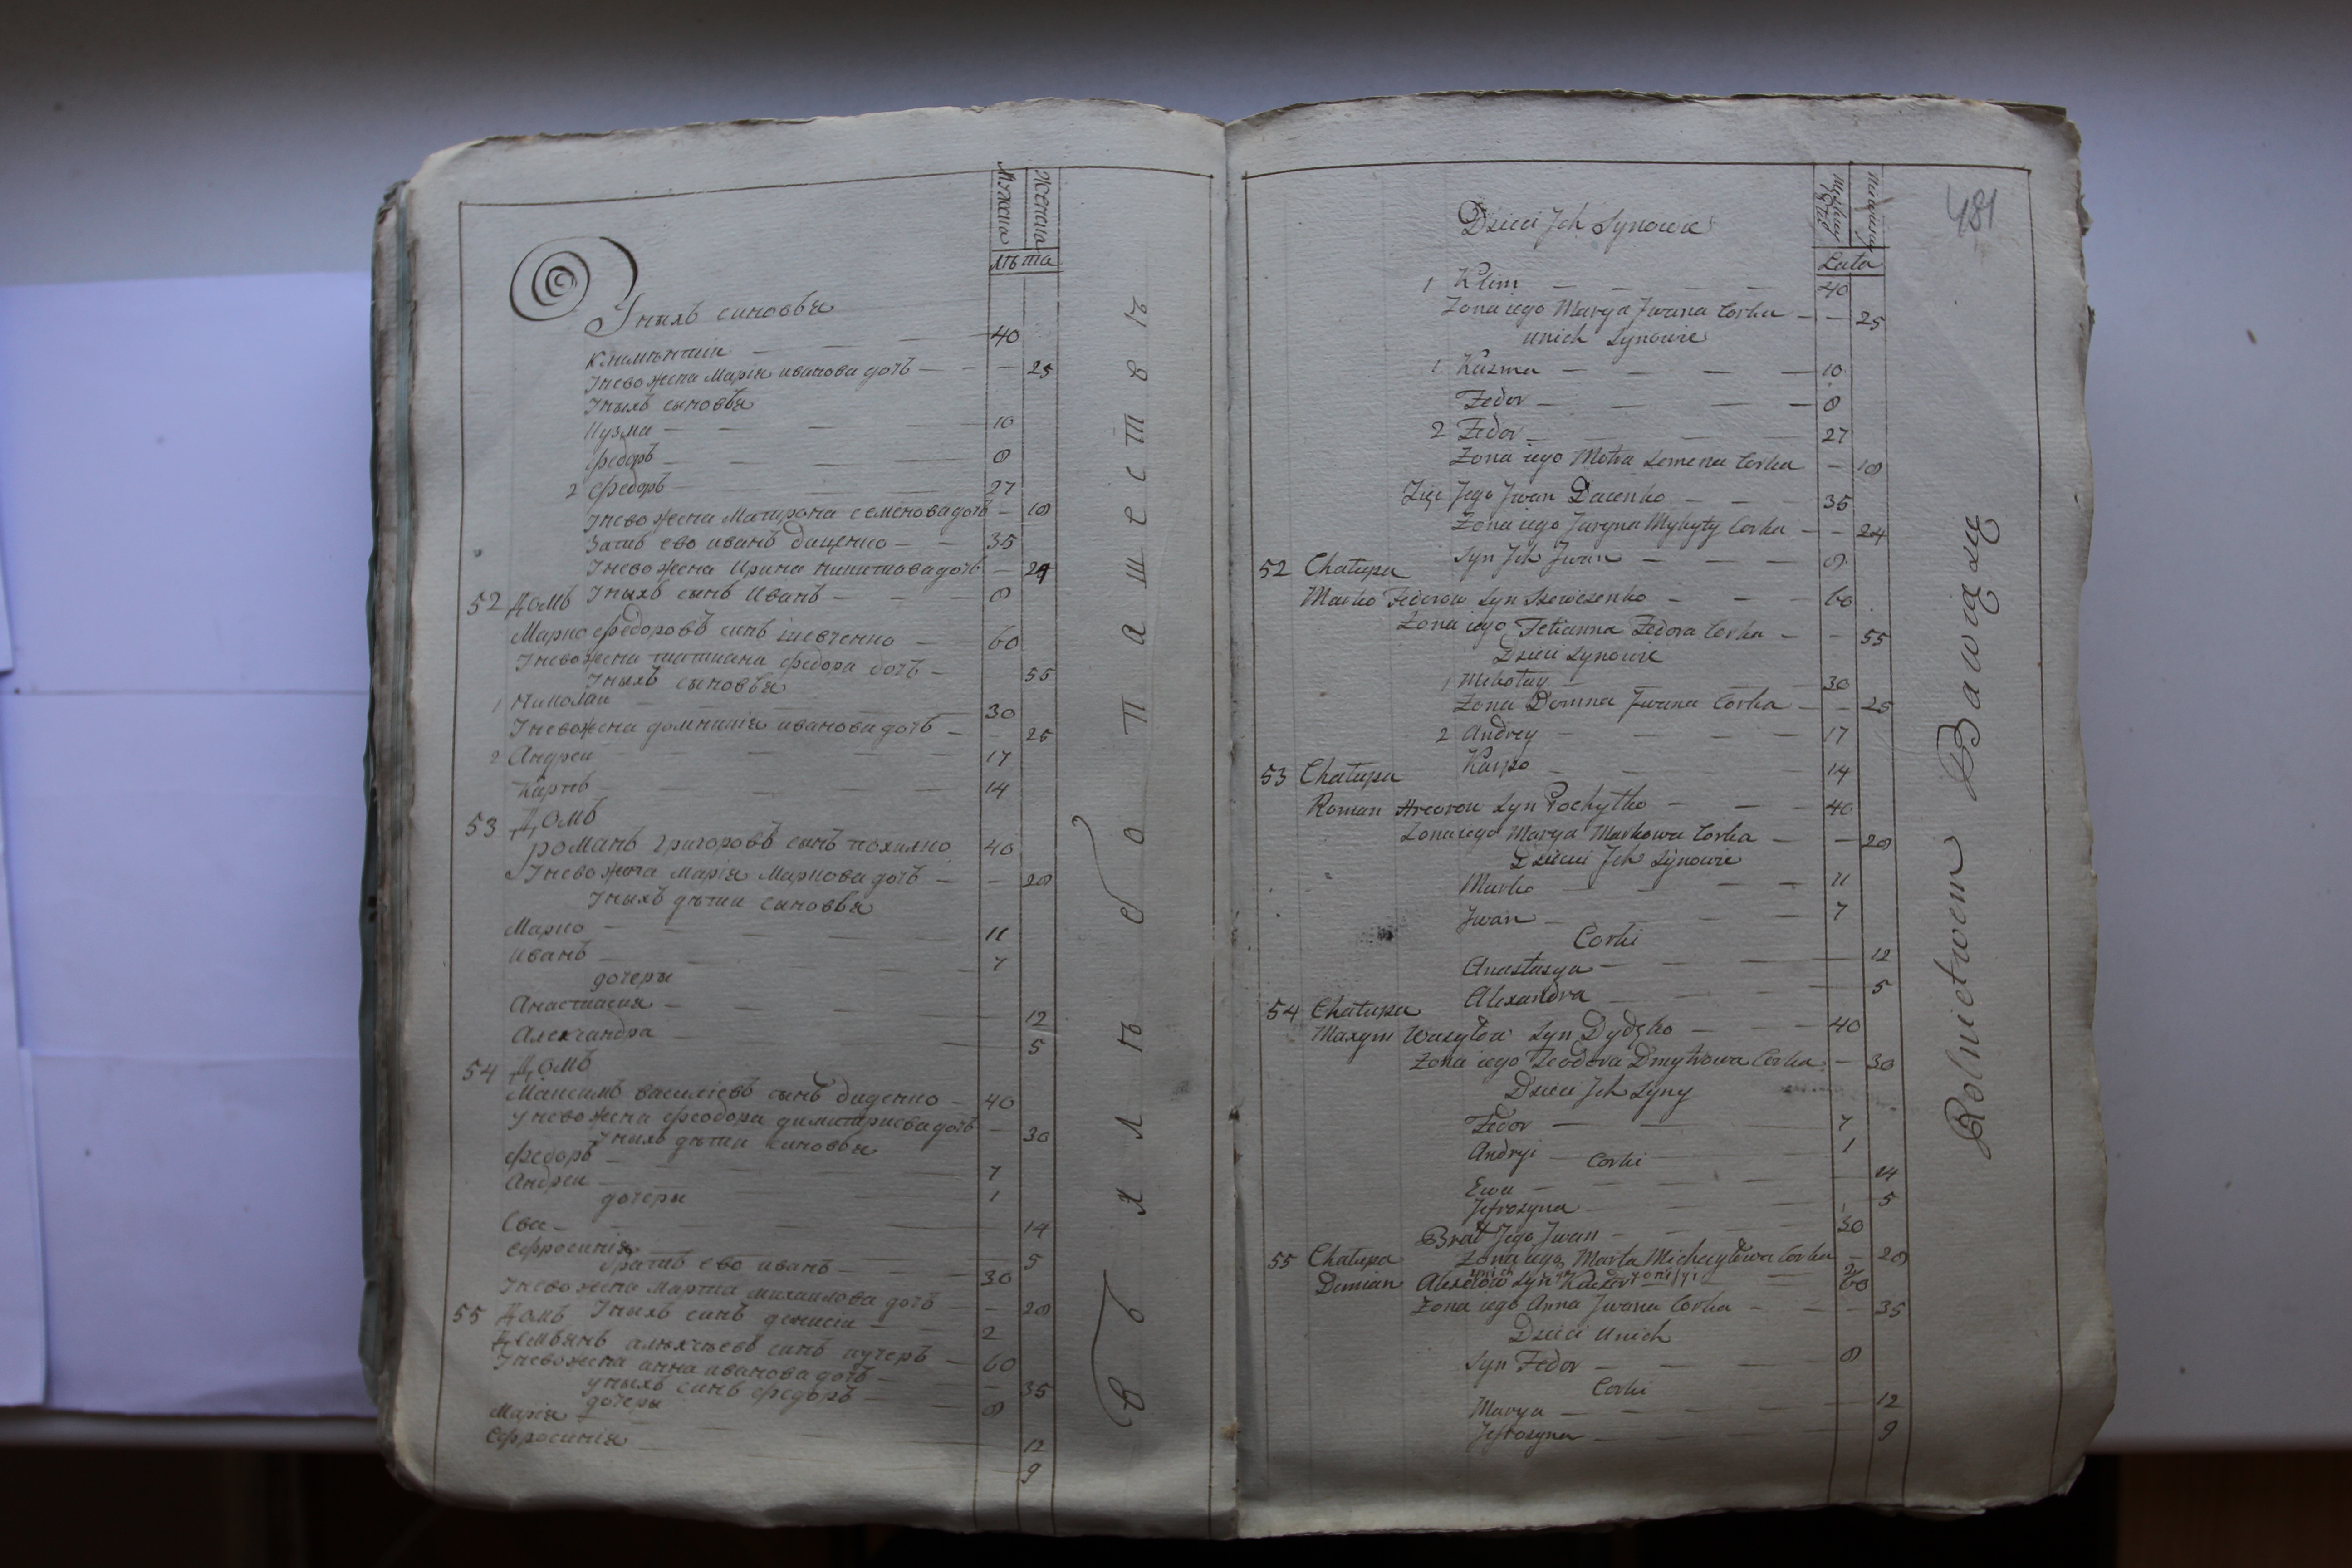 Мужеска
Женска
лѣта
Уныхъ синовья
Климентии 40
Унево жена Марія иванова дочъ 25
Уныхъ сыновья
Кузма 10
Федоръ 8
2 Федоръ 27
Унево жена Матрона семенова дочъ 18
Затъ ево иванъ даценко 35
Унево жена Ирина никитова дочъ 24
Уныхъ сынъ Иванъ 8
52 Домъ
Марко федоровъ синъ шевченко 60
Унево жена татиана федора дочъ 55
Уныхъ сыновья
1 Николаи 30
Унево жена домникія иванова дочъ 25
2 Андреи 17
Карпъ 14
53 Домъ
романъ григоровъ сынъ похилко 40
Унево жена марія Маркова дочъ 28
Уныхъ дѣти синовья
Марко 11
иванъ 7
дочеры
Анастасия 12
Александра 5
54 Домъ
Максимъ василіевъ сынъ диденко 40
Унево жена феодора димитриева дочъ 30
Уныхъ дѣти синовья
федоръ 7
Андреи 1
дочеры
Ева 14
Ефросинія 5
братъ ево иванъ 30
Унево жена Марта михаилова дочъ 28
Уныхъ синъ денисіи 2
55 Домъ
Демьянъ алексѣевъ синъ кучеръ 60
Унево жена анна иванова дочъ 35
уныхъ синъ федоръ 8
дочеры
Марія 12
Ефросинія 9
Въ хлѣбопашествѣ
481
Lata
Dzieci Jch Synowie
1 Klim 40
Zona iego Marya Jwana Corka 25
unich Synowie
1 Kuzma 10
Fedor 8
2 Fedor 27
Zona iego Motra Semena Corka 18
Zięc Jego Jwan Dacenko 35
Zona iego Jaryna Mykyty Corka 24
Syn Jch Jwan 8
52 Chałupa
Marko Fedorow Syn Szewczenko 60
Zona iego Tetianna Fedora Corka 55
Dzieci Synowie
1 Mikołay 30
Zona Domna Jwana Corka 25
2 Andrey 17
Karpo 14
53 Chałupa
Roman Hreorow Syn Pochyłko 40
Zona iego Marya Markowa Corka 28
Dzieci Jch Synowie
Marko 11
Jwan 7
Corki
Anastasya 12
Alexandra 5
54 Chałupa
Maxym Wasylow Syn Dydęko 40
Zona iego Teodora Dmytrowa Corka 30
Dzieci Jch Syny
Fedor 7
Andryi 1
Corki
Ewa 14
Jefrosyna 5
Brat Jego Jwan 30
Zona iego Marta Michayłowa Corka 28
unich Syn 2
55 Chałupa
Demian Alexiow Syn 60
Zona iego Anna Jwana Corka 35
Dzieci Unich
Syn Fedor 8
Corki
Marya 12
Jefrosyna 9
Rolnictwem Bawią się